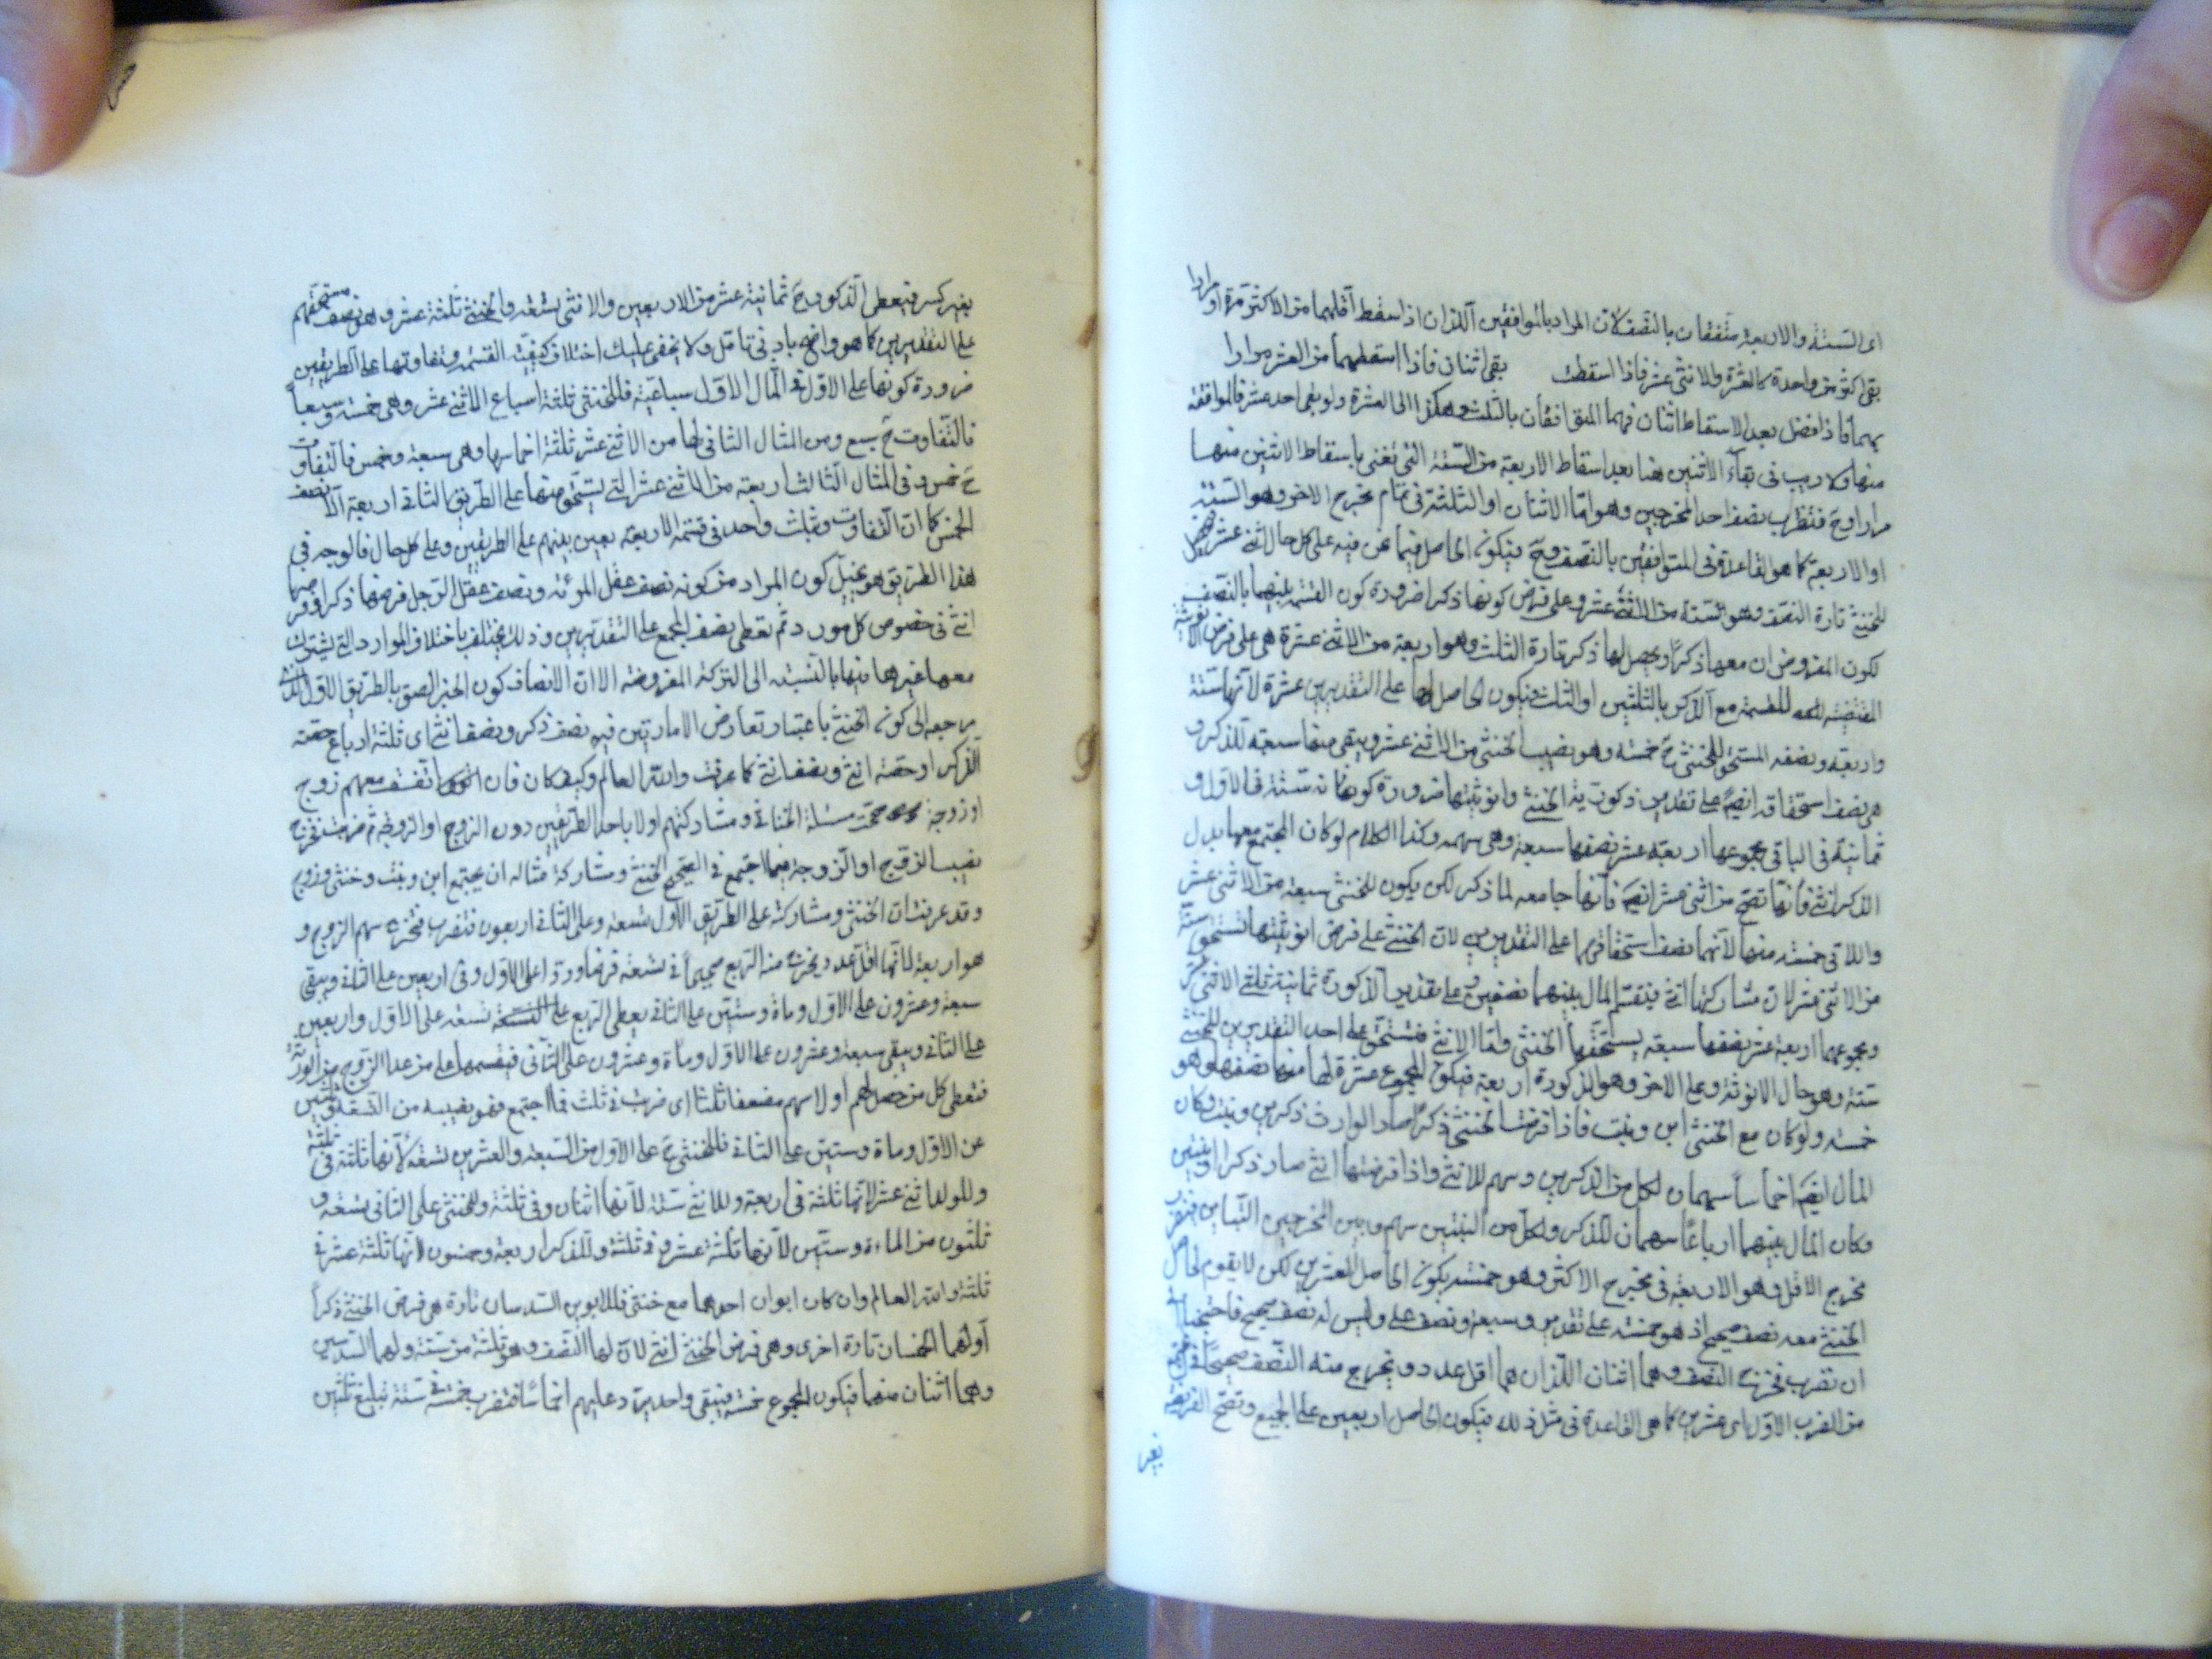 اى الستة والاربعة متفقان بالنصف لان المراد بالمتوافقين اللذان اذا سقط اقلهما من الاكثر مرة او مرارا
بقى اكثر من واحدة كالعشرة والاثنى عشر فاذا اسقطت بقى اثنان فاذا اسقطهما من العشر مرارا
بهما فاذا فضل بعد الاسقاط اثنان فهما المتوافقان بالثلث وهكذا الى العشرة ولو بقى احد عشر فالموافقة
منها ولا ريب فى بقاء الاثنين هنا بعد اسقاط الاربعة من الستة التى تفنى باسقاط الاثنين منها
مرارا وح فتضرب نصف احد المخرجين وهو اما الاثنان او الثلثة فى تمام مخرج الاخر وهو الستة
او الاربعة كما هو القاعدة فى المتوافقين بالنصف وح فيكون الحاصل فيما نحن فيه على كل حال اثنى عشر فيحصل
للخنثى تارة النصف وهو الستة من الاثنى عشر وعلى فرض كونها ذكرا ضرورة كون القسمة بينهما بالنصف
لكون المفروض ان معها ذكرا ويحصل لها ذكر تارة الثلث وهو اربعة من الاثنى عشرة هى على فرض الانوثية
المقتضية للقسمة مع الذكر بالثلثين او الثلث فيكون الحاصل لها على التقديرين عشرة لانها ستة
واربعة ونصفه المستحق للخنثى ح خمسة وهو نصيب الخنثى من الاثنى عشر ويبقى منها سبعة للذكر و
هى نصف استحقاقه ايضا على تقديرى ذكورية الخنثى وانوثيتها ضرورة كونها ستة فى الاول و
ثمانية فى الباقى مجموعها اربعة عشر نصفها سبعة وهى سهمه وكذا الكلام لو كان المجتمع معها بدل
الذكر انثى فانها تصح من اثنى عشر ايضا فانها جامعة لما ذكر لكن يكون للخنثى سبعة من الاثنى عشر
واللاتى خمسة منها لانهما نصف استحقاقهما على التقديرين لان الخنثى على فرض انوثيتها تستحق ستة
من الاثنى عشر لان مشاركتها انثى فيقسم المال بينهما نصفين وعلى تقدير الذكورة ثمانية ثلثى الاثنى عشر
ومجموعهما اربعة عشر نصفها سبعة يستحقها الخنثى واما الانثى فتستحق على احد التقديرين للخنثى
ستة وهو حال الانوثة وعلى الاخر وهو الذكورة اربعة فيكون المجموع عشرة لها منها نصفها وهو
خمسة ولو كان مع الخنثى ابن وبنت فاذا فرضت الخنثى ذكرا صار الوارث ذكرين وبنت وكان
المال ايضا اخماسا سهمان لكل من الذكرين وسهم للانثى واذا فرضتها انثى صار ذكرا وبنتين
وكان المال بينهما ارباعا سهمان للذكر ولكل من البنتين سهم وبين المخرجين التباين فتضرب
مخرج الاقل وهو الاربعة فى مخرج الاكثر وهو خمسة يكون الحاصل العشرين لكن لا يقوم لحاصل
الخنثى معه نصف صحيح اذ هو خمسة على تقدير وسبعة ونصف على وليس له نصف صحيح فاحتجنا الى
ان نضرب مخرج النصف وهما اثنان اللذان هما اقل عدد ويخرج منه النصف صحيحا فى المرتفع
من الضرب الاول اى عشرين كما هى القاعدة فى مثل ذلك فيكون الحاصل اربعين على الجميع وتصح الفريضة
بغير
بغير كسر فيعطى الذكور ح ثمانية عشر من الاربعين والانثى تسعة والخنثى ثلثة عشر وهو نصف مستحقهم
على التقديرين كما هو واضح بادنى تامل ولا يخفى عليك اختلاف كيفية القسمة وتفاوتها على الطريقين
ضرورة كونها على الاول فى المال الاول سباعية فللخنثى ثلثة اسباع الاثنى عشر وهى خمسة وسبعا
فالتفاوت ح بسبع ومن المثال الثانى لها من الاثنى عشر ثلثة اخماسها وهى سبعة وخمس فالتفاوت
ح بخمس وفى المثال الثالث اربعة من الاثنى عشر التى يستحق منها على الطريق الثانى اربعة الا نصف
الخمس كما ان التفاوت وثبت واحد فى قسمة الاربعة بعين بينهم على الطريقين وعلى كل حال فالوجه فى
هذا الطريق هو تخيل كون المراد من كونه نصف عقل المرئة ونصف عقل الرجل فرضها ذكرا وفرضها
انثى فى خصوص كل مورد ثم تعطى نصف المجمع على التقديرين وذلك يختلف باختلاف الموارد التى يشترك
معها غيرها فيها بالنسبة الى التركة المفروضة الا ان الانصاف كون الخبر الصق بالطريق الاول الذى
مرجعه الى كون الخنثى باعتبار تعارض الامارتين فيه نصف ذكر ونصف انثى اى ثلثة ارباع حصة
الذكر او حصة انثى ونصف انثى كما عرفت والله العالم وكيف كان فان اتفقت معهم زوج
او زوجة صححت مسئلة الخناثى ومشاركتهم اولا باحد الطريقين دون الزوج او الزوجة ثم ضربت مخرج
نصيب الزوج او الزوجة فيما اجتمع فى الصحيح الخنثى ومشاركة مثاله ان يجتمع ابن وبنت وخنثى وزوج
وقد عرفت ان الخنثى ومشاركة على الطريق الاول تسعة وعلى الثانى اربعون فتضرب مخرج سهم الزوج و
هو اربعة لانها اقل عدد يخرج منه الربع صحيحا فى تسعة فرضا ورد على الاول وفى اربعين على الثانى ويبقى
سبعة وعشرون على الاول وماة وستين على الثانى يعطى الربع على القسمة تسعة على الاول واربعين
على الثانى ويبقى سبعة وعشرون على الاول وماة وعشرون على الثانى فيقسمها على من عدا الزوج من الورثة
فتعطى كل من حصل لهم اولا سهم مضعفا ثلثا اى ضرب فى ثلث فما اجتمع فهو نصيبه من التسعة وثلثين
عن الاول وماة وستين على الثانى فللخنثى ح على الاول من السبعة والعشرين تسعة لانها ثلثة فى ثلثة
وللولد اثنى عشر لانها ثلثة فى اربعة وللانثى ستة لانها اثنان وفى ثلثة وللخنثى على الثانى تسعة و
ثلثون من الماءة وستين لانها ثلثة عشر وفى ثلثة وللذكر اربعة وخمسون لانها ثلثة عشر فى
ثلثة والله العالم وان كان ابوان احدهما مع خنثى فللابوين السدسان تارة هى فرض الخنثى ذكرا
او لهما الخمسان تارة اخرى وهى فرض الخنثى انثى لان لها النصف وهو ثلثة من ستة ولهما السدسين
وهما اثنان منهما فيكون المجموع خمسة فيبقى واحد يرد عليهم اخماسا فتضرب خمسة فى ستة تبلغ ثلثين